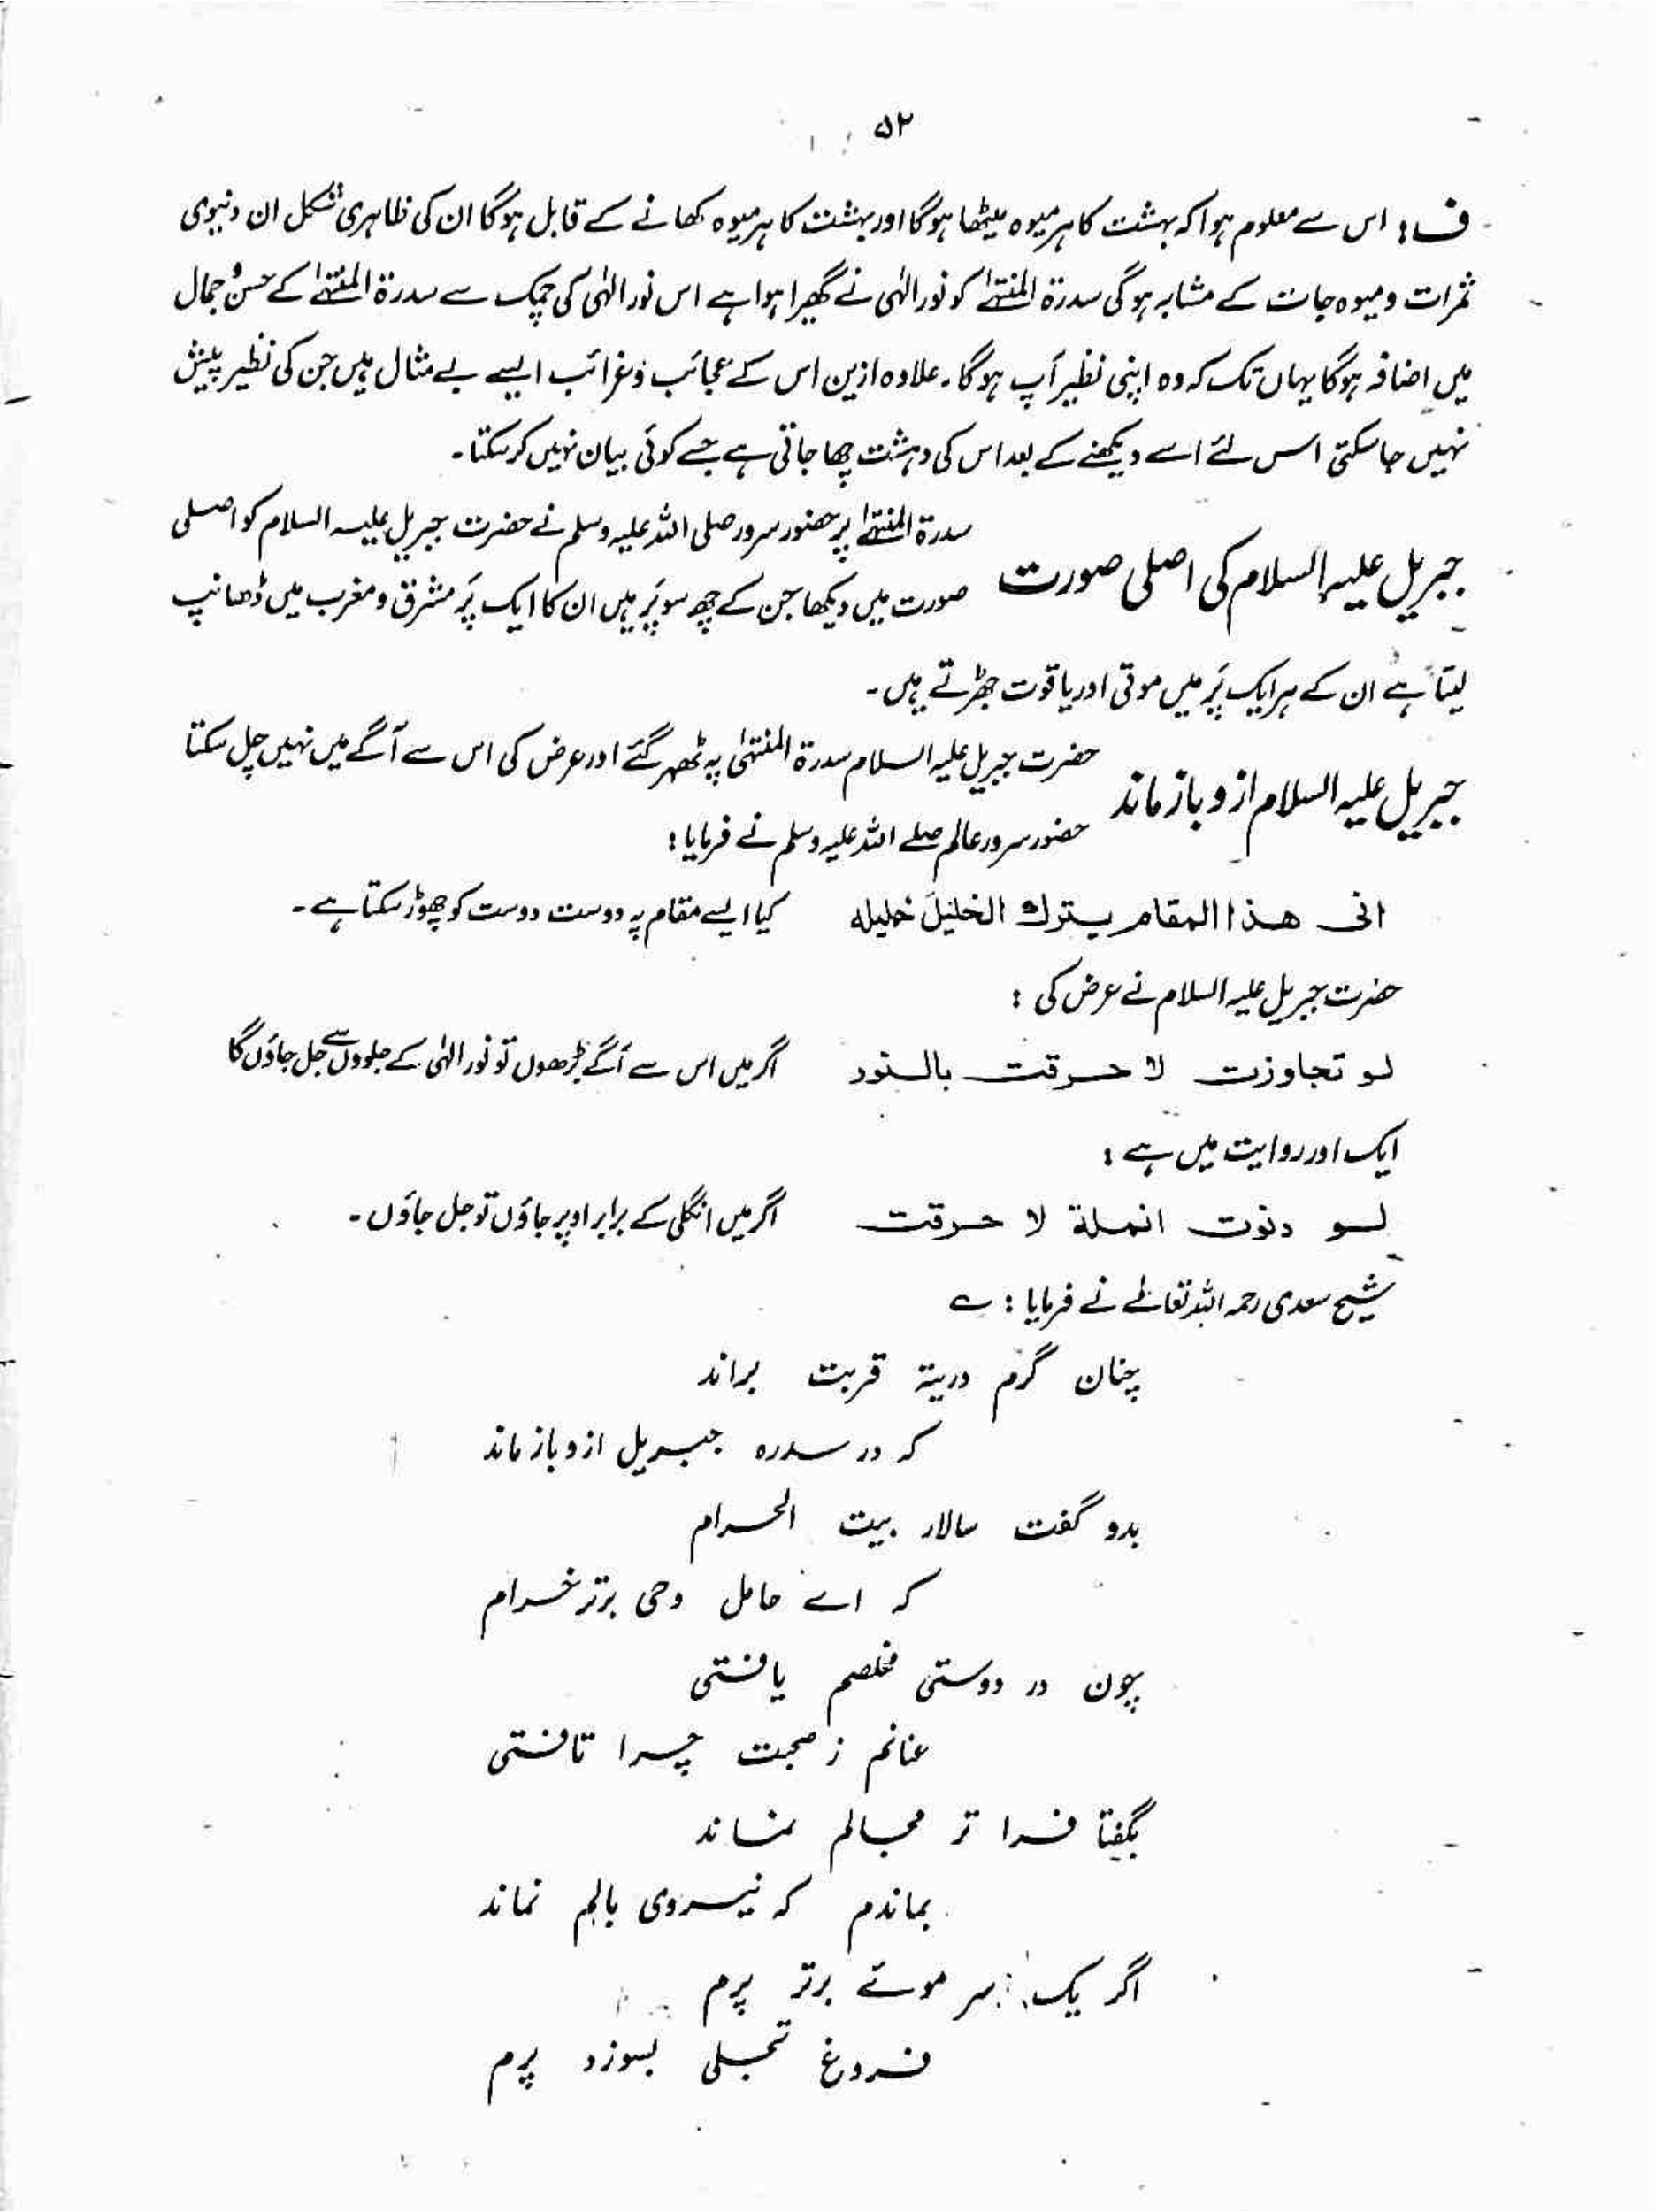 ۵۲
ف: اس سے معلوم ہوا کہ بہشت کا ہر میوہ میٹھا ہوگا اور بہشت کا ہر میوہ کھانے کے قابل ہوگا ان کی ظاہری شکل ان دنیوی
ثمرات و میوہ جات کے مشابہ ہوگی سدرۃ المنتہےٰ کو نور الٰہی نے گھیرا ہوا ہے اس نور الٰہی کی چمک سے سدرۃ المنتہےٰ کے حسن و جمال
میں اضافہ ہوگا یہاں تک کہ وہ اپنی نظیر آپ ہوگا۔ علاوہ ازین اس کے عجائب و غرائب ایسے بے مثال ہیں جن کی نظیر پیش
نہیں جا سکتی اس لئے اسے دیکھنے کے بعد اس کی دہشت چھا جاتی ہے جسے کوئی بیان نہیں کر سکتا۔
جبریل علیہ السلام کی اصلی صورت
سدرۃ المنتہےٰ پر حضور سرور صلی اللہ علیہ وسلم نے حضرت جبریل علیہ السلام کو اصلی
صورت میں دیکھا جن کے چھ سو پَر ہیں ان کا ایک پَر مشرق و مغرب میں ڈھانپ
لیتا ہے ان کے ہر ایک پَر میں موتی اور یاقوت جھڑتے ہیں۔
جبریل علیہ السلام ازو باز ماند
حضرت جبریل علیہ السلام سدرۃ المنتہیٰ پہ ٹھہر گئے اور عرض کی اس سے آگے میں نہیں چل سکتا
حضور سرور عالم صلے اللہ علیہ وسلم نے فرمایا:
انی ھذا المقام یترک الخلیلَ خلیلہ کیا ایسے مقام پہ دوست دوست کو چھوڑ سکتا ہے۔
حضرت جبریل علیہ السلام نے عرض کی:
لو تجاوزت لا حرقت بالنور اگر میں اس سے آگے بڑھوں تو نور الٰہی کے جلووں سے جل جاؤں گا
ایک اور روایت میں ہے:
لو دنوت انملۃ لا حرقت اگر میں انگلی کے برابر اوپر جاؤں تو جل جاؤں۔
شیخ سعدی رحمہ اللہ تعالےٰ نے فرمایا: ے
چنان گرم درتیۃ قربت براند
کہ در سدرہ جبریل ازو باز ماند
بدو گفت سالار بیت الحرام
کہ اے حامل وحی برتر خرام
چون در دوستی مخلصم یافتی
عنانم ز صحبت چرا تافتی
بگفتا فرا تر مجالم نماند
بماندم کہ نیروی بالم نماند
اگر یک سر موئے برتر پرم
فروغ تجلی بسوزد پرم